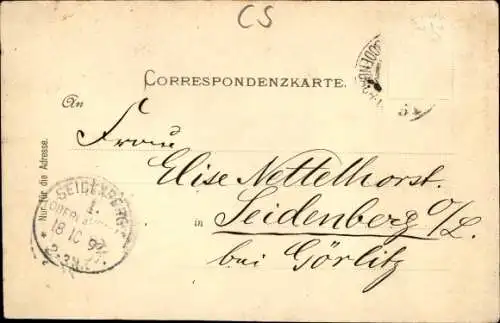 CS
CORRESPONDENZKARTE.
An
Frau
Elise Nettelhorst.
in Seidenberg O/L.
bei Görlitz
Nur für die Adresse.
SEIDENBERG
1.
18 10 9